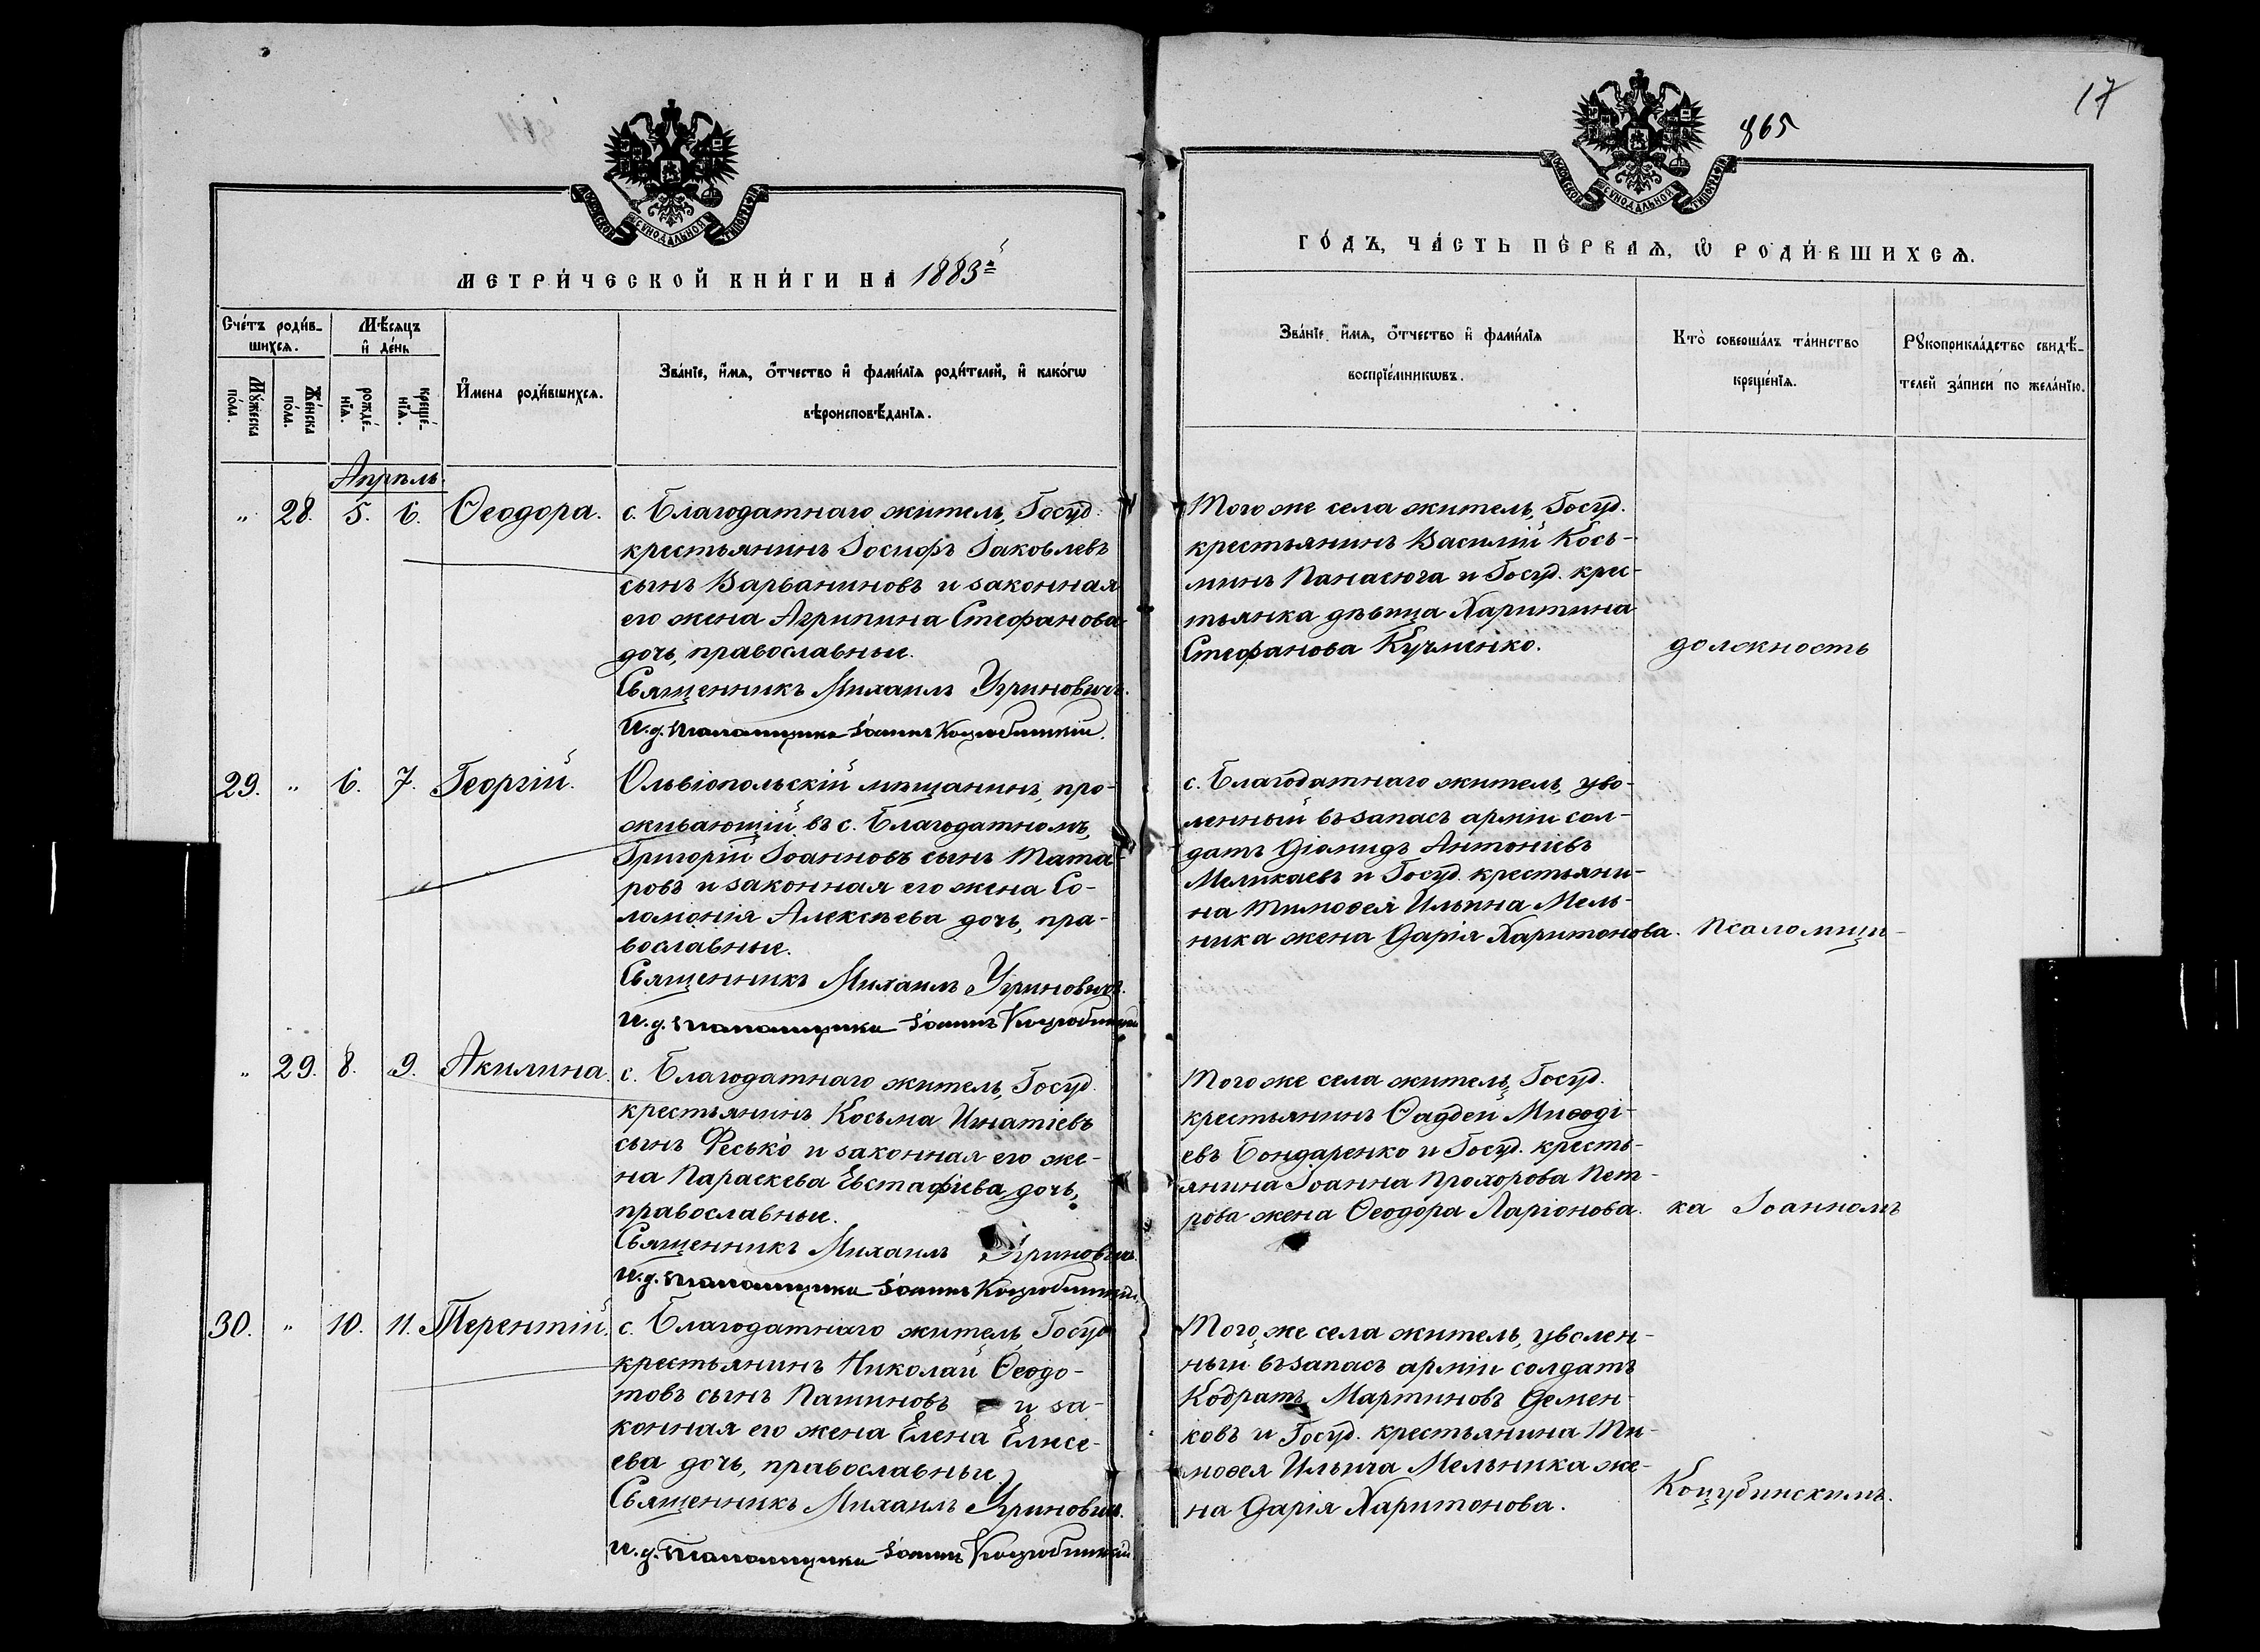 17
865
МОСКОВСКОЙ СѴНОДАЛЬНОЙ ТИПОГРАФІИ
МОСКОВСКОЙ СѴНОДАЛЬНОЙ ТИПОГРАФІИ
МЕТРИ́ЧЕСКОЙ КНИ́ГИ НА 1883й
ГО́ДЪ, ЧА́СТЬ ПЕ́РВАѦ, Ѽ РОДИ́ВШИХСѦ.
Сче́тъ роди́в-
шихсѧ.
Мѣ́сѧцъ
и҆ де́нь
Мꙋ́жеска
по́ла.
Же́нска
по́ла.
рожде́-
нїѧ.
креще́-
нїѧ.
И҆́мена роди́вшихсѧ.
Зва́нїе, и҆́мѧ, ѻ҆́тчество и҆ фами́лїѧ роди́телей, и҆ како́гѡ
вѣроисповѣ́данїѧ.
Зва́нїе, и҆́мѧ, ѻ҆́тчество и҆ фами́лїѧ
воспрїе́мникѡвъ.
Кто̀ соверша́лъ та́инство
креще́нїѧ.
Рꙋкоприкла́дство свидѣ́-
телей за́писи по жела́нїю.
Апрѣль.
" 28. 5. 6. Ѳеодора.
с. Благодатнаго житель, Госуд.
крестьянинъ Іосифъ Іаковлевъ
сынъ Варваниновъ и законная
его жена Агрипина Стефанова
дочь, православные.
Священникъ Михаилъ Угриновичъ.
И. д. псаломщика Іоаннъ Коцюбинскій.
Того же села житель, Госуд.
крестьянинъ Василій Кось-
минъ Панасюга и Госуд. крес-
тьянка дѣвица Харитина
Стефанова Кучменко.
должность
29. " 6. 7. Георгій.
Ольвіопольскій мѣщанинъ, про-
живающій въ с. Благодатномъ,
Григорій Іоанновъ сынъ Тата-
ровъ и законная его жена Со-
ломонія Алексѣева дочь, пра-
вославные.
Священникъ Михаилъ Угриновичъ.
И. д. псаломщика Іоаннъ Коцюбинскій
с. Благодатнаго житель, уво-
ленный въ запасъ арміи сол-
датъ Діомидъ Антоніевъ
Меликаевъ и Госуд. крестьяни-
на Тимоѳея Ильина Мель-
ника жена Дарія Харитонова.
псаломщи-
" 29. 8. 9. Акилина.
с. Благодатнаго житель, Госуд.
крестьянинъ Косьма Игнатіевъ
сынъ Фесько и законная его же-
на Параскева Евстафіева дочь,
православные.
Священникъ Михаилъ Угриновичъ.
И. д. псаломщика Іоаннъ Коцюбинскій.
Того же села житель, Госуд.
крестьянинъ Ѳаддей Миѳоді-
евъ Бондаренко и Госуд. кресть-
янина Іоанна Прохорова Пет-
рова жена Ѳеодора Ларіонова.
ка Іоанномъ
30. " 10. 11. Терентій.
с. Благодатнаго житель, Госуд
крестьянинъ Николай Ѳеодо-
товъ сынъ Пашиновъ и за-
конная его жена Елена Елисе-
ева дочь, православные.
Священникъ Михаилъ Угриновичъ.
И. д. псаломщика Іоаннъ Коцюбинскій.
Того же села житель, уволен-
ный въ запасъ арміи солдатъ
Кодратъ Мартиновъ Демен-
ковъ и Госуд. крестьянина Ти-
моѳея Ильича Мельника же-
на Дарія Харитонова.
Коцубинскимъ.